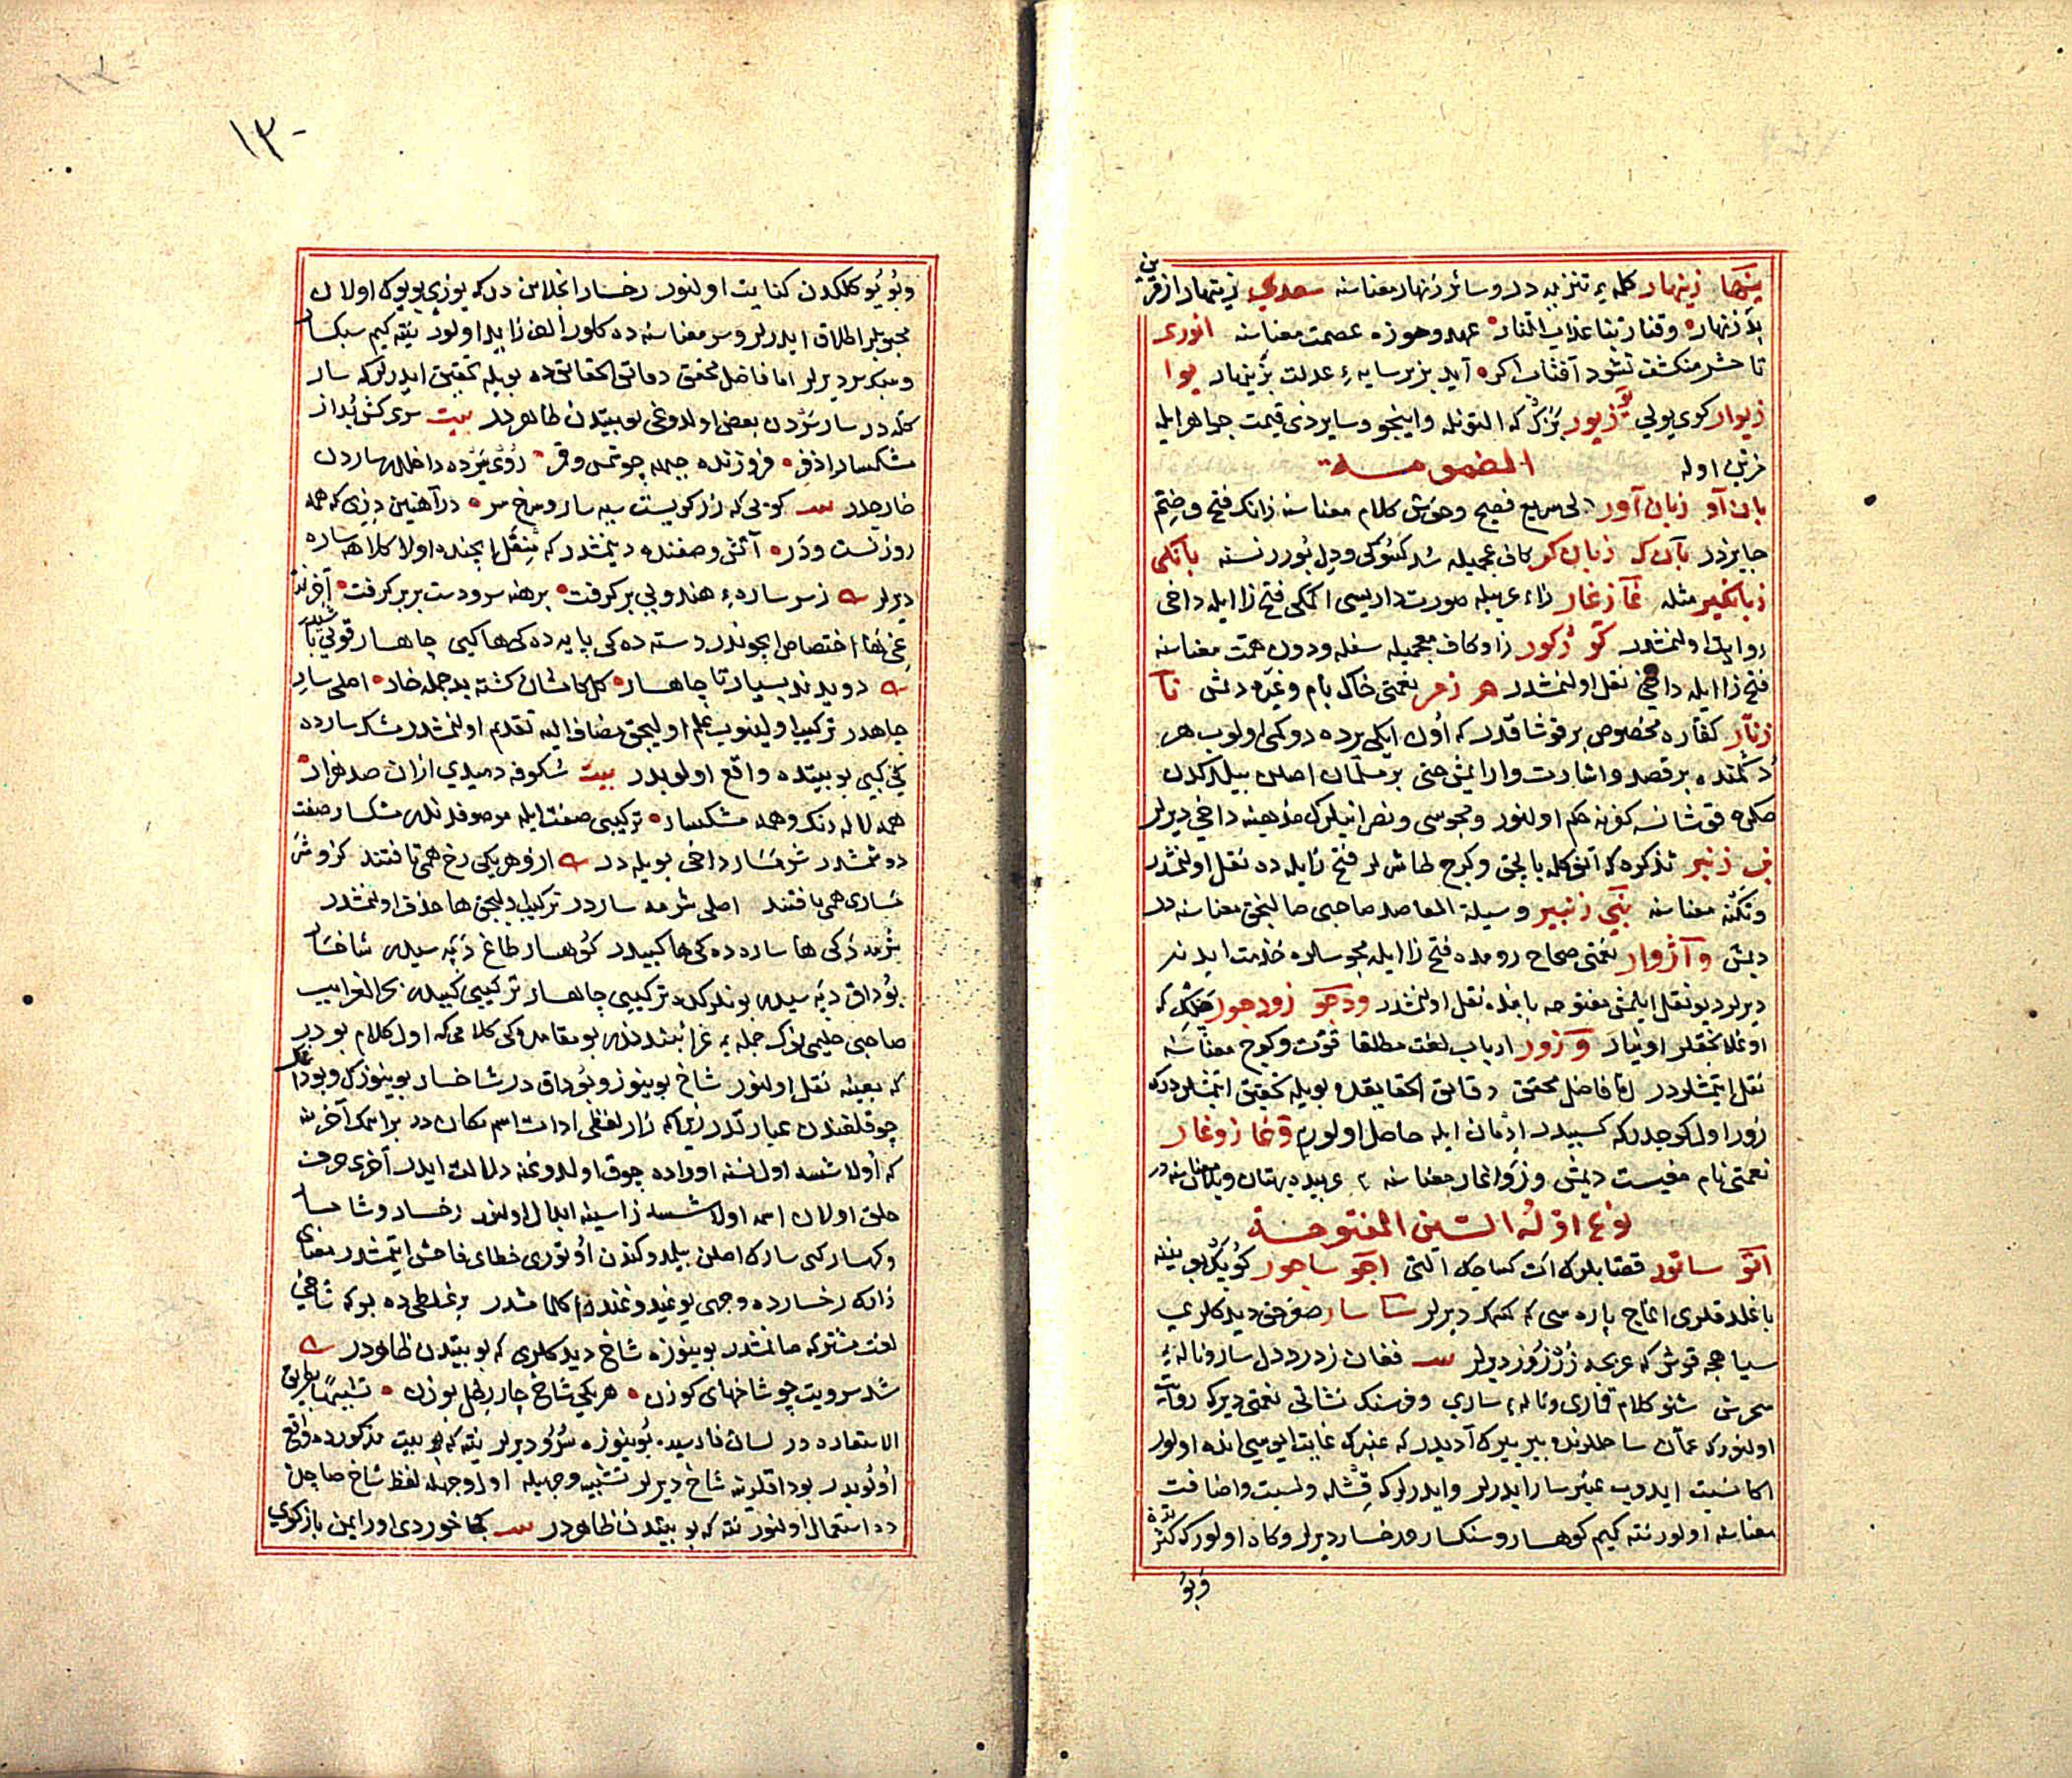 ینها زینهار کلمه تنزیه در وسائر زنهار معناسنه سعدی زینهار از قرین
بد زنهار وقنا ربنا عذاب النار عهد وحوزه عصمت معناسنه انوری
تا حشر منکشف نشود آفتاب اکر آید بزیر سایهٔ عدلت بزینهار یوا
زیوار کوی یولی زیور بزک که التونله واینجو وسایر ذی قیمت جواهر ایله
مزین اوله المضمومــة
بان آو زبان آور دلی سریع فصیح وخوش کلام معناسنه زانک فتح وضمّ
جایزدر بان ک زبان کر کافی عجمیله
زبانکیر مثله غمآ زغار زاء عربیله صورت داریسی اکمکی فتح زا ایله داخی
روایت اولنمشدر کو زکور زا وکاف عجمیله سفله ودون همت معناسنه
فتح زا ایله داخی نقل اولنمشدر هر زهر نعمتی خاک بام وغیره دیمش نا
زنار کفاره مخصوص بر قوشاقدر که اون ایکی برده دوکمی اولوب هر
دکمنده بر قصد واشارت وار ایمش حتی بر مسلمان اصلن بیلمکدن
صکره قوشانسه کفرنه حکم اولنور ومجوسی ونصرانیلرک مذهبنه داخی دیرلر
زنبر تذکره که آنوکله بالچق وکرج طاش لر فتح زایله ده نقل اولنمشدر
معناسنه زنبیر وسیلة المقاصد صاحبی صالنجق معناسنه در
دیمش وآژوار نعمتی صحاح رومده فتح زا ایله مجوسلره خدمت ایدنه
دیرلر دیو نقل ایلمش مفتوحه بابنده نقل اولنمشدر ودجو زودجور که
اوغلانجقلر اوینار و زور ارباب لغت مطلقا قوت وکوج معناسنه
نقل ایتمشلردر اما فاضل محقق دقائق الحقایقده بویله تحقیق ایتمشلردر که
زور اول کوجدر که کسبیدر ادمان ایله حاصل اولور وغا زوغار
نعمتی نام مغیست دیمش وزواغار معناسنه عربیده بهتان ویلان معناسنه در
نوع اوّل السین المفتوحــة
اتو ساتور قصابلرک ات کساجک آلتی اجو ساجور کوپک بوینینه
باغلدقلری اغاج پاره سی که دیرلر سا سار صغرجق دیدکلری
سیاهجه قوش که عربجه زرزور دیرلر فغان زدرد دل سار وناله
سحرش شنو کلام قماری وناله ساری وفرسنک نشانی نعمتی دیر که روایت
اولنور که عمان ساحللرنده بیر ییرک آدیدر که عنبرک غایت ایوسی انده اولور
اکا نسبت ایدوب عنبر سارا دیرلر وایدرلر که ونسبت واضافت
معناسنه اولور نته کیم کوهسار وسنکسار ورخسار دیرلر وکاه اولور که کثرته
وبو
١٣٠
وبویوکلکدن کنایت اولنور رخسار انجلاین در که یوزی بویوک اولان
محبوبلر اطلاق ایدرلر وسر معناسنه ده کلور الف زاید اولور نیته کیم سبکسار
وسبکسر دیرلر اما فاضل محقق دقائق الحقائقده بویله تحقیق ایدرلر که سار
کله در سار سردن بعض اولدوغی بو بیتدن ظاهردر بیت سرکش بُد از
مشکسار اذفر فروزنده چهره چو شمس وقمر رؤی پرده داخللر بهاردن
خارجدر کویی که زر کویست سیه سار وسرخ سر در آهنین دزی که همه
روزنست ودر آتش وصفنده دیمشدر که منقل ایچنده اولا کلاهه ساره
دیرلر زسر ساره هندویی بر کرفت برهنه سر ودست بر بر کرفت آخرنده
غی ها اختصاص ایچوندر دسته ده کی پایه ده کی ها کیبی چاهسار قویی باشی
دویدند بسیار تا چاهسار کل کامشان کشته بد جمله خار اصلی سار
چاهدر ترکیب اولینوب علم اولیجق مضاف الیه تقدیم اولنمشدر مشک سارده
کی کیبی بو بیتده واقع اولوبدر بیت شکوفه دمیدی ازان صد هزار
همه لاله رنک وهمه مشکسار ترکیبی صفت ایله موصوفدندر مشکسار صفت
دوشمشدر شرمسار داخی بویله در از وهر یکی رخ همی تافتند کزو شر
مساری همی یافتند اصلی شرمه ساردر ترکیب دلیجق ها حذف اولنمشدر
شرمه ده کی ها ساره ده کی ها کیبیدر کوهسار طاغ دپه سیدر شاخسار
بوداق دپه سیدر بونلرک ده ترکیبی چاهسار ترکیبی کیبیدر بحر الغرایب
صاحبی حلیمی نوک جمله غرائبندندر بو مقامده کی کلامی که اول کلام بودر
که بعینه نقل اولنور شاخ بوینوز وبوداق در شاخسار بوینوزک وبوداغک
چوقلغندن عبارتدر زیرا که زار لفظی ادات اسم مکان در بر اسمک آخرنه
که اولاشسه اول نسنه اوراده چوق اولدوغنه دلالت ایدر آخری حرف
حلق اولان اسمه اولاشسه زا سینه ابدال اولنور رخسار وشاخسار
وکهسار کبی سارک اصلن بیلمدوکندن اوتوری خطای فاحش ایتمشدر معنای
زانک رخسارده وجهی یوغیدوغندن کلمامشدر بر غلطی ده بو که شاخی
لغت مشترکه صانمشدر بوینوزه شاخ دیدکلری که بو بیتدن ظاهردر
شد سرویت چو شاخهای کوزن هر یکی شاخ چار رطل بوزن تشبیها بطریق
الاستعاره در لسان فارسیده بوینوزه سرو دیرلر نیته که بو بیت مذکورده واقع
اولوبدر بوداقلرینه شاخ دیرلر تشبیه وجهیله اول وجهله لفظ شاخ صاچلن
ده استعمال اولنور نته که بو بیتدن ظاهردر کجا خوردی اور ایمن باز کوی